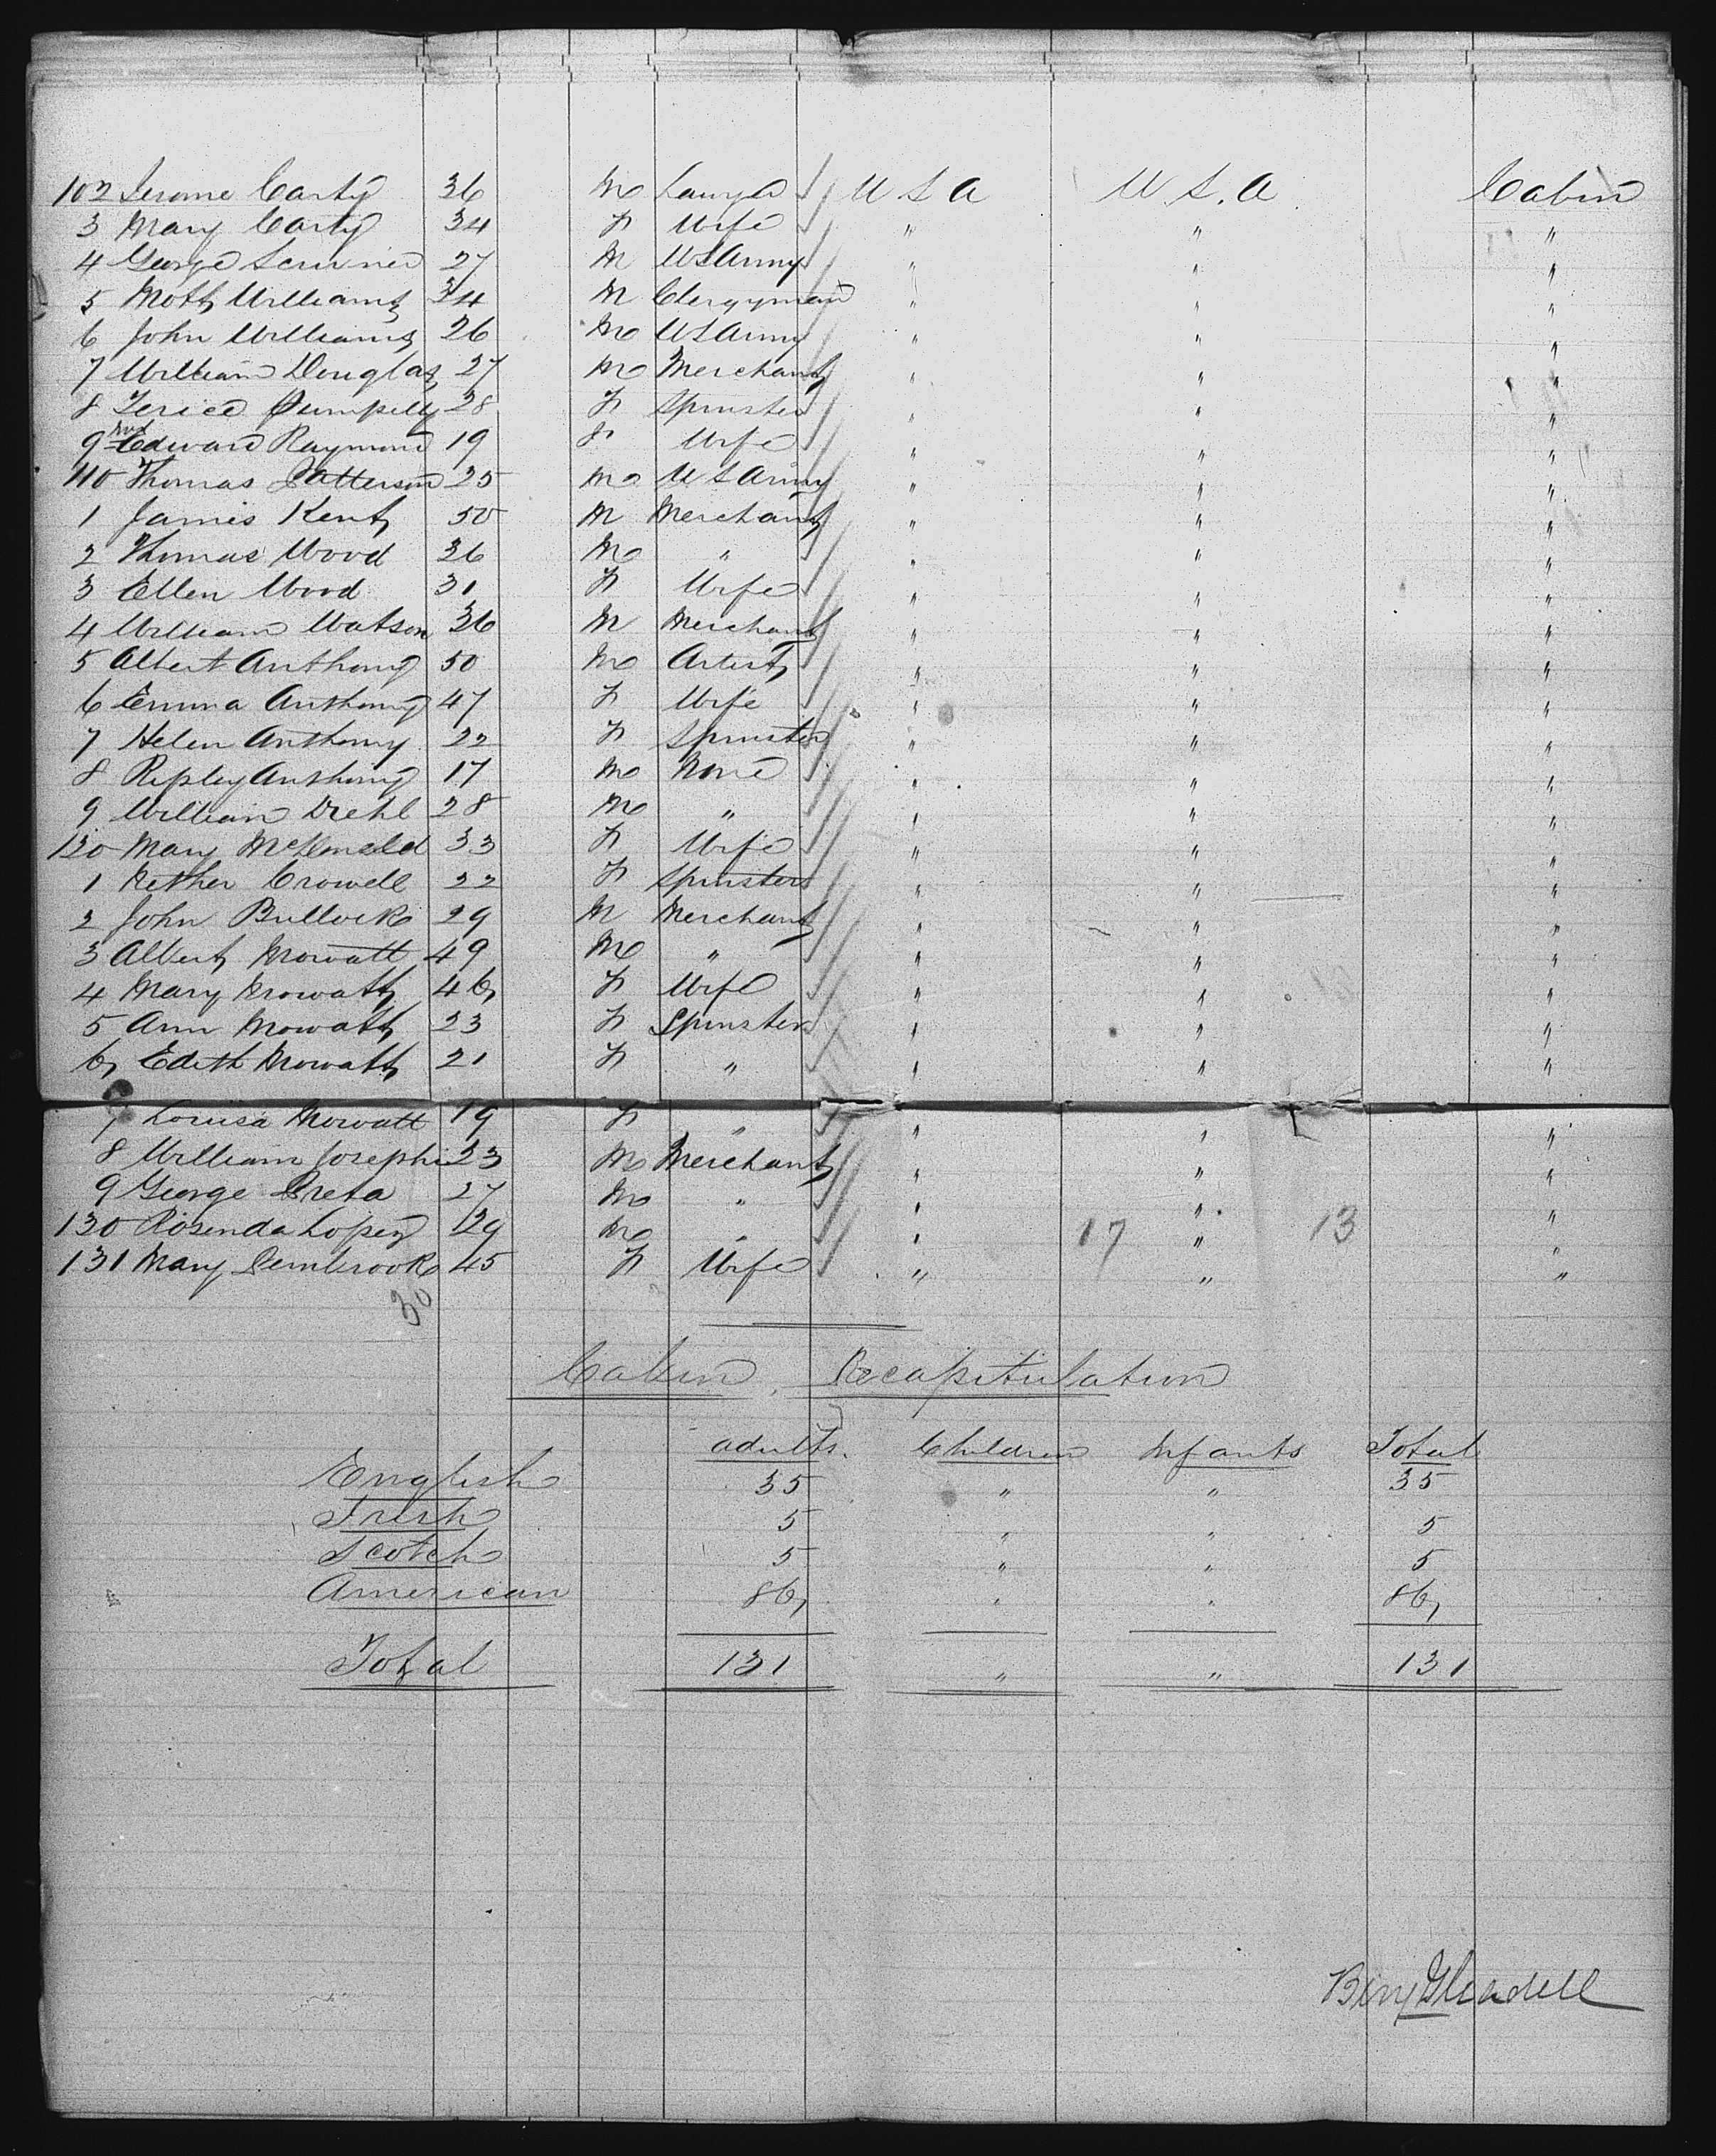 102 Jerome Carty 36 M Lawyer U S A U S. A Cabin
3 Mary Carty 34 F Wife " " "
4 George Scriviner 27 M US Army " " "
5 Mott Williams 34 M Clergyman " " "
6 John Williams 26 M US Army " " "
7 William Douglas 27 M Merchant " " "
8 Pumpelly 28 F Spinster " " "
9 Mrs Edward Raymond 19 F Wife " " "
110 Thomas Patterson 25 M US Army " " "
1 James Kent 50 M Merchant " " "
2 Thomas Wood 36 M " " " "
3 Ellen Wood 31 F Wife " " "
4 William Watson 36 M Merchant " " "
5 Albert Anthony 50 M Artist " " "
6 Emma Anthony 47 F Wife " " "
7 Helen Anthony 22 F Spinster " " "
8 Ripley Anthony 17 M None " " "
9 William Diehl 28 M " " " "
120 Mary McDonald 33 F Wife " " "
1 Nether Crowell 22 F Spinster " " "
2 John Bullock 29 M Merchant " " "
3 Albert Mowatt 49 M " " " "
4 Mary Mowatt 46 F Wife " " "
5 Ann Mowatt 23 F Spinster " " "
6 Edith Mowatt 21 F " " " "
7 Louisa Mowatt 19 F " " " "
8 William Josephi 23 M Merchant " " "
9 George 27 M " " " "
130 Rosenda Lopez 29 M " " 17 " 13 "
131 Mary Pembrook 45 F Wife " " "
30
Cabin. Recapitulation
adults. Children Infants Total
English 35 " " 35
Irish 5 " " 5
Scotch 5 " " 5
American 86 " " 86
Total 131 " " 131
Benj Gleadell